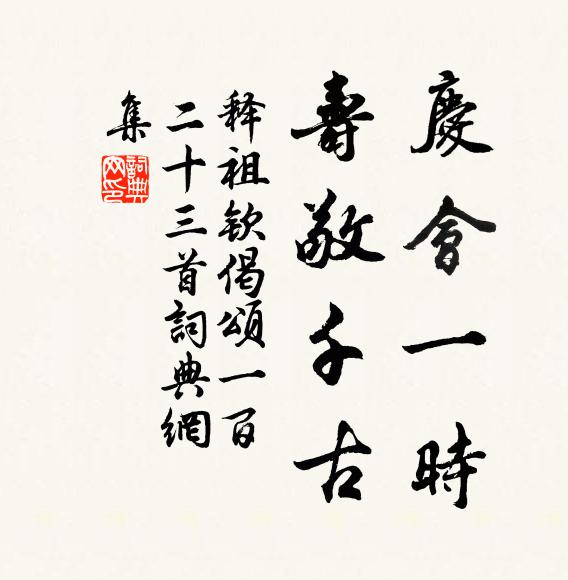 慶會一時
壽敬千古
释祖欽偈頌一百
二十三首詞典網
集
詞典网印